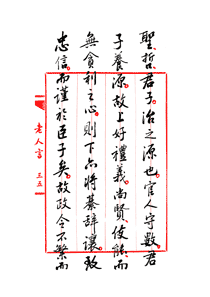 聖哲君子治之源也官人守數君
子養源故上好禮義尚賢使能而
無貪利之心則下亦將綦辭讓致
忠信而謹於臣子矣故政令不繁而
老人言 三五